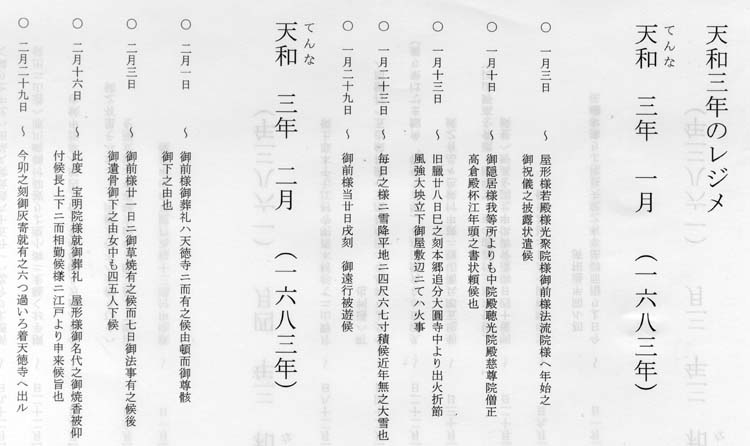 天和三年のレジメ
てんな
天和　三年　一月　（一六八三年）
○　一月三日　～　屋形様若殿様光聚院様御前様法流院様へ年始之
御祝儀之披露状遣候
○　一月十日　～　御隠居様我等所よりも中院殿聴光院殿慈尊院僧正
高倉殿杯江年頭之書状頼候也
○　一月十三日　～　旧臘廿八日巳之刻本郷追分大圓寺中より出火折節
風強大坱立下御屋敷辺ニてハ火事
○　一月二十三日　～　毎日之様ニ雪降平地ニ四尺六七寸積候近年無之大雪也
○　一月二十九日　～　御前様当廿日戌刻　御遠行被遊候
てんな
天和　三年　二月　（一六八三年）
○　二月一日　～　御前様御葬礼ハ天徳寺ニ而有之候由頓而御尊骸
御下之由也
○　二月三日　～　御前様廿一日ニ御草焼有之候而七日御法事有之候後
御遺骨御下之由女中も四五人下候
○　二月十六日　～　此度　宝明院様就御葬礼　屋形様御名代之御焼香被仰
付候長上下ニ而相勤候様ニ江戸より申来候旨也
○　二月二十九日　～　今卯之刻御灰寄就有之六つ過いろ着天徳寺へ出ル